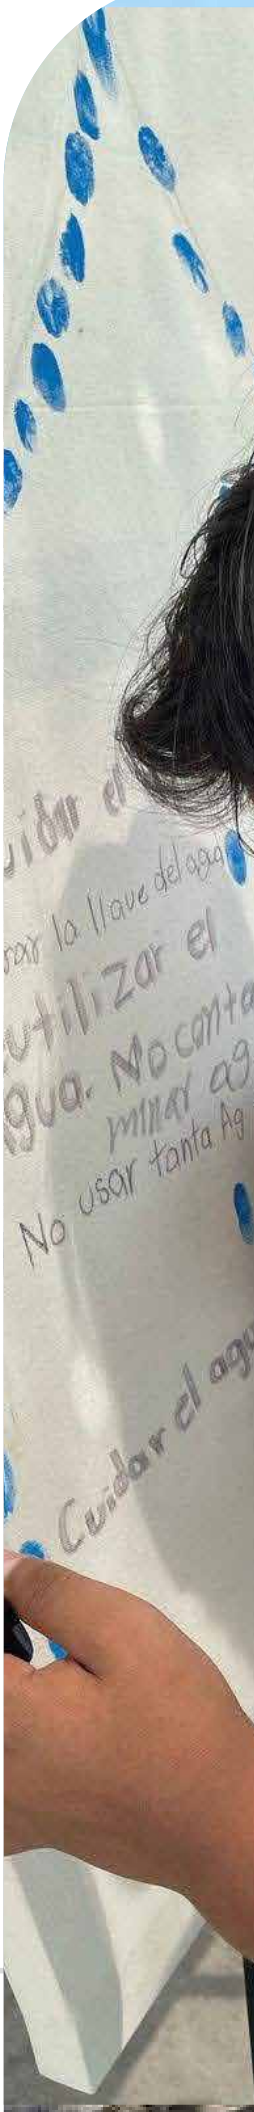 uidar el
rar la llave del agua
utilizar el
gua. No conta
minar ag
No usar tanta Ag
Cuidar el agu